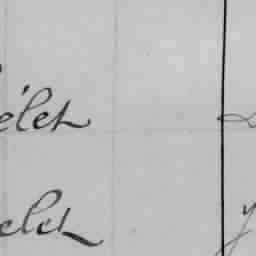 élet
elet